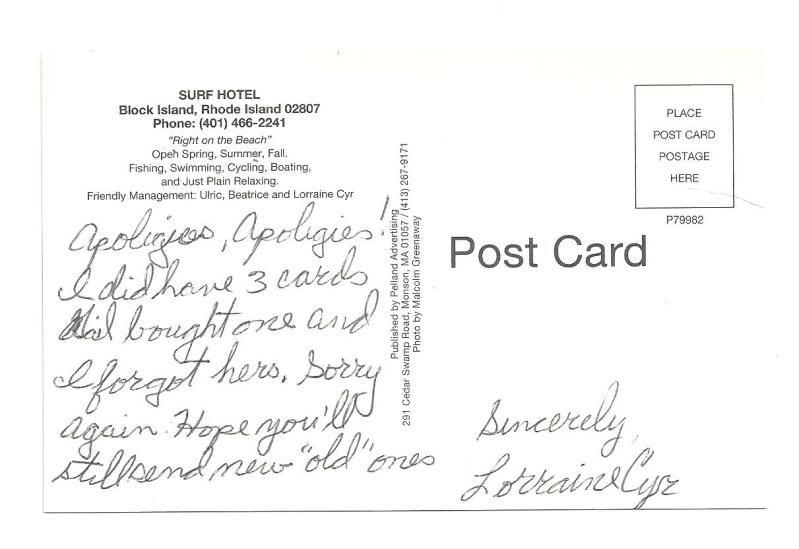 SURF HOTEL
Block Island, Rhode Island 02807
Phone: (401) 466-2241
"Right on the Beach"
Open Spring, Summer, Fall.
Fishing, Swimming, Cycling, Boating,
and Just Plain Relaxing.
Friendly Management: Ulric, Beatrice and Lorraine Cyr
Apoligies, Apoligies!
I did have 3 cards
bought one and
I forgot hers. Sorry
again. Hope you'll
still send new "old" ones
Published by Pelland Advertising
291 Cedar Swamp Road, Monson, MA 01057 / (413) 267-9171
Photo by Malcolm Greenaway
PLACE
POST CARD
POSTAGE
HERE
P79982
Post Card
Sincerely,
Lorraine Cyr